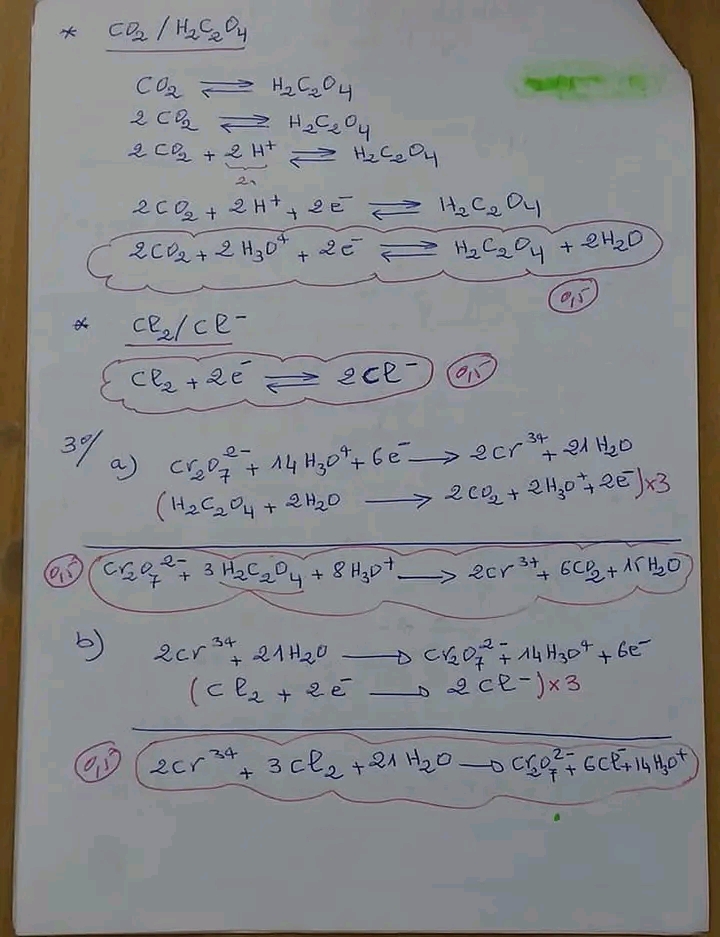 * CO₂ / H₂C₂O₄
CO₂ ⇌ H₂C₂O₄
2 CO₂ ⇌ H₂C₂O₄
2 CO₂ + 2 H⁺ ⇌ H₂C₂O₄
2CO₂ + 2H⁺ + 2e⁻ ⇌ H₂C₂O₄
2CO₂ + 2 H₃O⁺ + 2e⁻ ⇌ H₂C₂O₄ + 2H₂O
0,5
* Cl₂/Cl⁻
Cl₂ + 2e⁻ ⇌ 2Cl⁻ 0,5
3°/ a) Cr₂O₇²⁻ + 14H₃O⁺ + 6e⁻ → 2Cr³⁺ + 21H₂O
(H₂C₂O₄ + 2H₂O → 2CO₂ + 2H₃O⁺ + 2e⁻)×3
0,5 Cr₂O₇²⁻ + 3 H₂C₂O₄ + 8H₃O⁺ → 2Cr³⁺ + 6CO₂ + 15H₂O
b) 2Cr³⁺ + 21H₂O → Cr₂O₇²⁻ + 14H₃O⁺ + 6e⁻
(Cl₂ + 2e⁻ → 2Cl⁻)×3
0,5 2Cr³⁺ + 3Cl₂ + 21H₂O → Cr₂O₇²⁻ + 6Cl⁻ + 14H₃O⁺